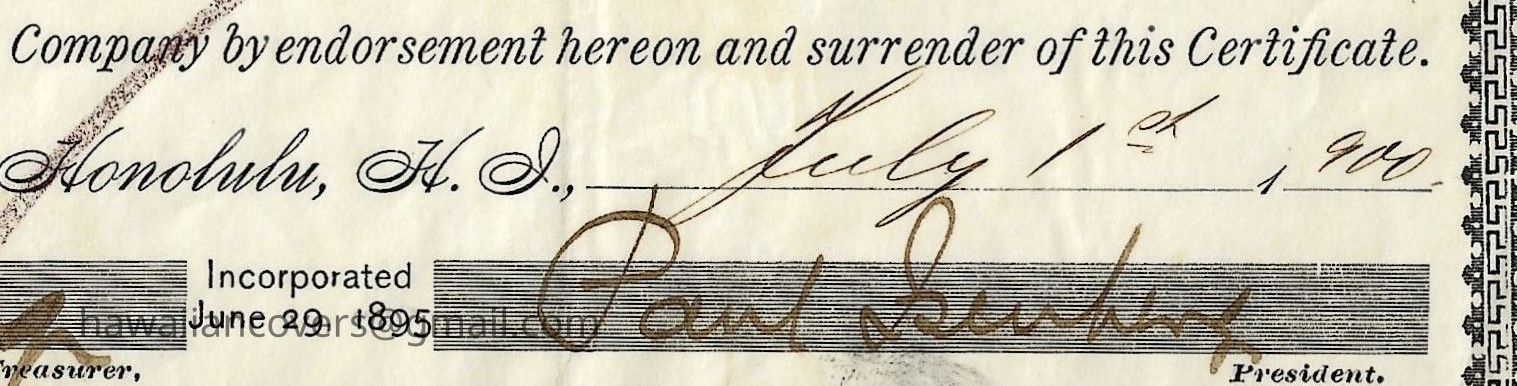 Company by endorsement hereon and surrender of this Certificate.
Honolulu, H. I., July 1st, 1900.
Incorporated
June 29. 1895
hawaiiancovers@gmail.com
Paul Isenberg
Treasurer,
President.